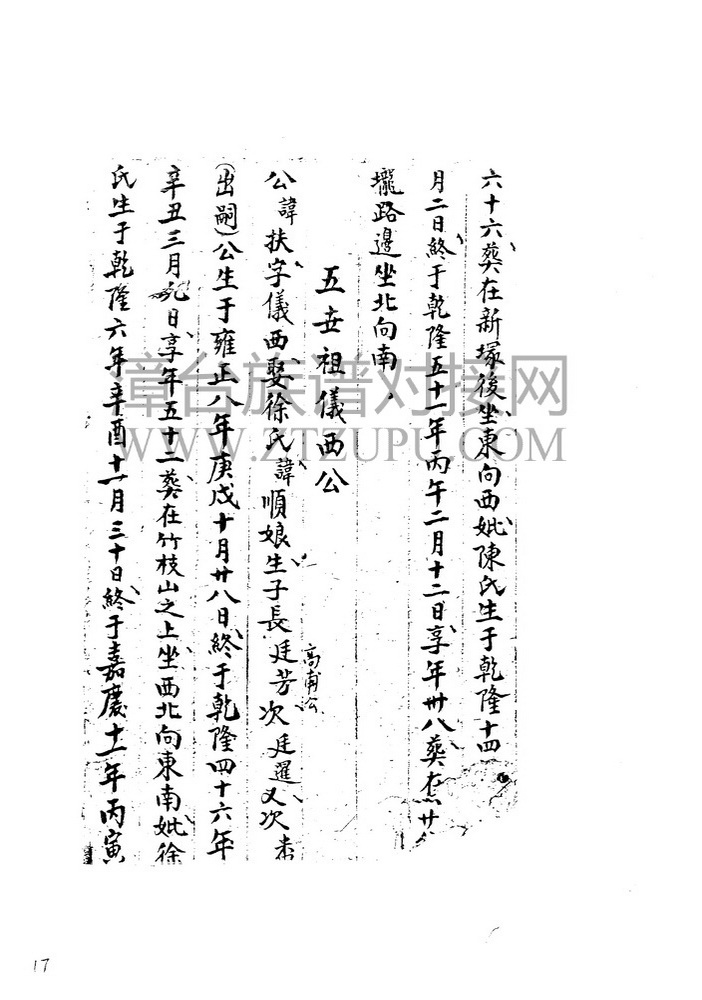 六十六葬在新塚後坐東向西妣陳氏生于乾隆十四
月二日終于乾隆五十一年丙午二月十二日享年卅八葬在
壠路邊坐北向南
五世祖儀西公
公諱扶字儀西娶徐氏諱順娘生子長廷芳次廷暹又次
高甫公
(出嗣)公生于雍正八年庚戌十月廿八日終于乾隆四十六年
辛丑三月九日享年五十二葬在竹枝山之上坐西北向東南妣徐
氏生于乾隆六年辛酉十一月三十日終于嘉慶十一年丙寅
章台族谱对接网
WWW.ZTZUPU.COM
17